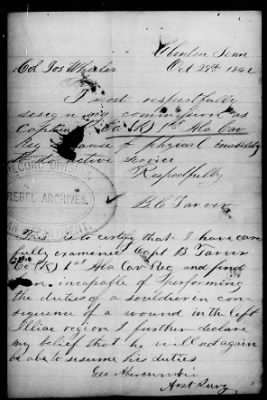 Clinton Tenn
Oct 29th 1862
Col Jos Wheeler
Sir
I most respectfully
resign my commission as
Captain Co (K) 1st Ala Cav
Reg because of physical inability
to do active service
Respectfully
B C Tarver
RECORD DIVISION
REBEL ARCHIVES
WAR DEPARTMENT
This is to certify that I have care
fully examined Capt B Tarver
Co (K) 1st Ala Cav Reg and find
him incapable of performing
the duties of a souldier in con
siquence of a wound in the left
Illiac region I further declare
my belief that he will not again
be able to resume his duties
Geo Abercrombie
Asst Surg